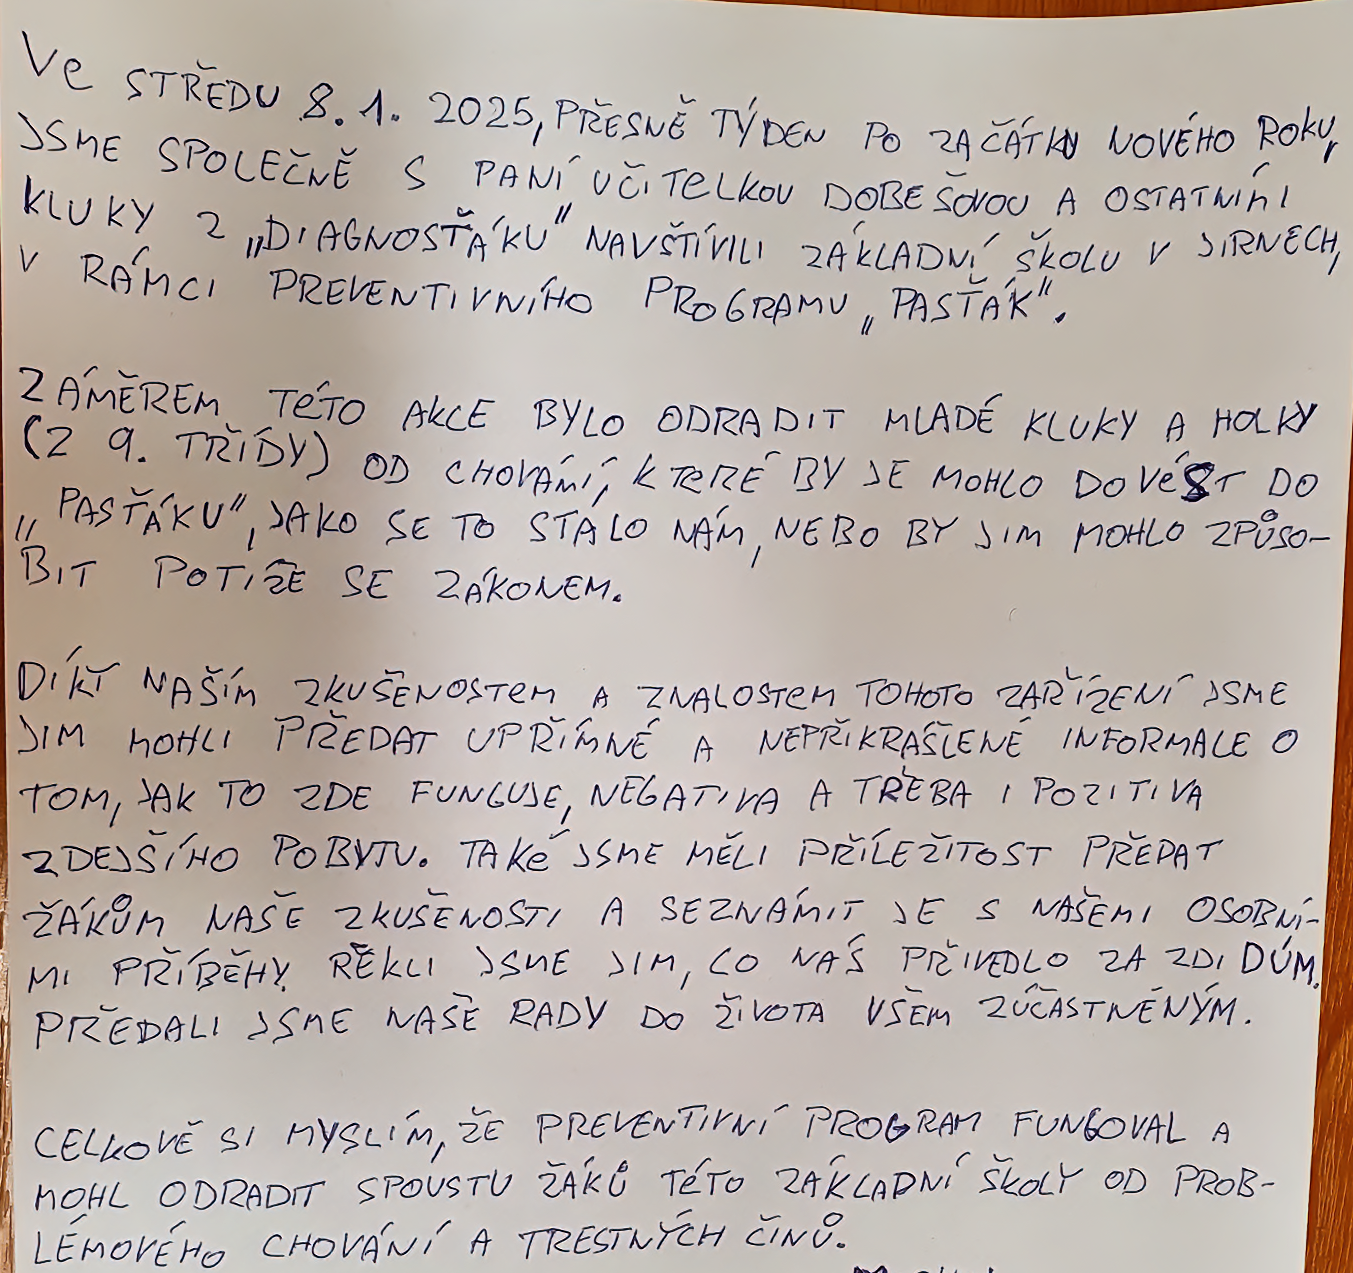 Ve STŘEDU 8.1. 2025, PŘESNĚ TÝDEN PO ZAČÁTKU NOVÉHO ROKU,
JSME SPOLEČNĚ S PANÍ UČITELKOU DOBEŠOVOU A OSTATNÍMI
KLUKY Z „DIAGNOSŤÁKU" NAVŠTÍVILI ZÁKLADNÍ ŠKOLU V JIRNECH,
V RÁMCI PREVENTIVNÍHO PROGRAMU „PASŤÁK".
ZÁMĚREM TÉTO AKCE BYLO ODRADIT MLADÉ KLUKY A HOLKY
(Z 9. TŘÍDY) OD CHOVÁNÍ, KTERÉ BY JE MOHLO DOVÉST DO
„PASŤÁKU", JAKO SE TO STALO NÁM, NEBO BY JIM MOHLO ZPŮSO-
BIT POTÍŽE SE ZÁKONEM.
DÍKY NAŠÍM ZKUŠENOSTEM A ZNALOSTEM TOHOTO ZAŘÍZENÍ JSME
JIM MOHLI PŘEDAT UPŘÍMNÉ A NEPŘIKRÁŠLENÉ INFORMALE O
TOM, JAK TO ZDE FUNGUJE, NEGATIVA A TŘEBA I POZITIVA
ZDEJŠÍHO POBYTU. TAKÉ JSME MĚLI PŘÍLEŽITOST PŘEDAT
ŽÁKŮM NAŠE ZKUŠENOSTI A SEZNÁMIT JE S NAŠEMI OSOBNÍ-
MI PŘÍBĚHY. ŘEKLI JSME JIM, CO NÁS PŘIVEDLO ZA ZDI DÚM.
PŘEDALI JSME NAŠE RADY DO ŽIVOTA VŠEM ZÚČASTNĚNÝM.
CELKOVĚ SI MYSLÍM, ŽE PREVENTIVNÍ PROGRAM FUNGOVAL A
MOHL ODRADIT SPOUSTU ŽÁKŮ TÉTO ZÁKLADNÍ ŠKOLY OD PROB-
LÉMOVÉHO CHOVÁNÍ A TRESTNÝCH ČINŮ.